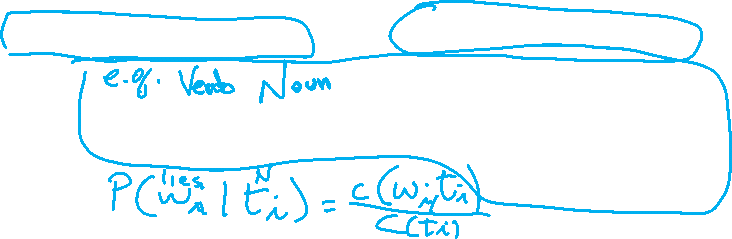 e.g. Verb Noun
lies N
P(wᵢ | tᵢ) = c(wᵢ, tᵢ) / C(tᵢ)